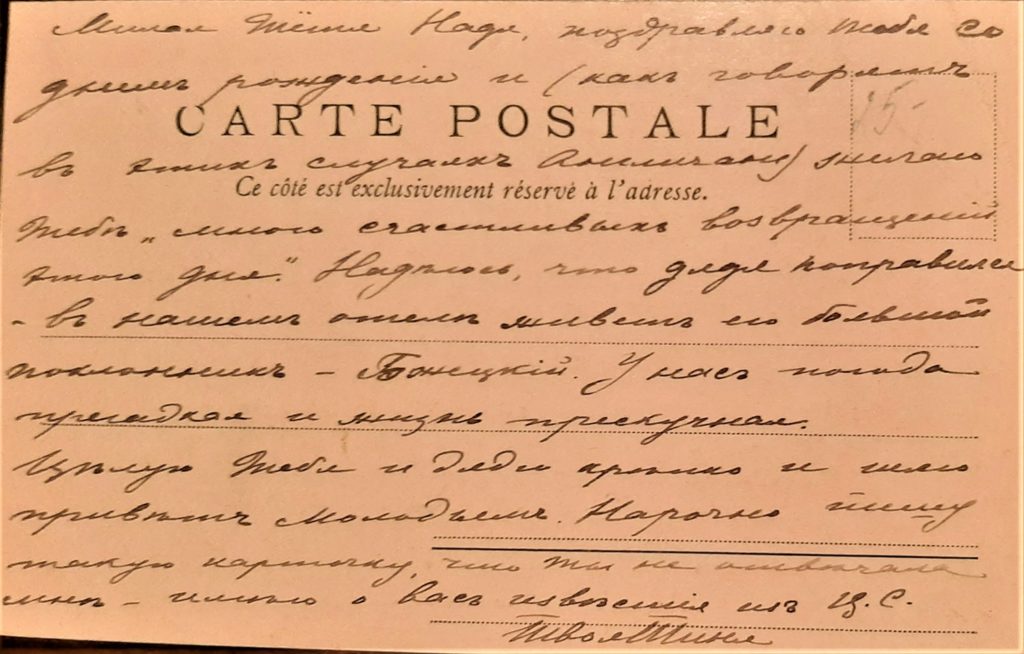 Милая Тётя Надя, поздравляю Тебя со
днемъ рожденія и (какъ говорятъ
25-
CARTE POSTALE
въ этихъ случаяхъ Англичане) желаю
Ce côté est exclusivement réservé à l'adresse.
Тебѣ „много счастливыхъ возвращеній
этого дня." Надѣюсь, что дядя поправился
- въ нашемъ отелѣ живетъ его большой
поклонникъ - Божецкій. У насъ погода
прегадкая и жизнь прескучная.
Цѣлую Тебя и дядю крѣпко и шлю
привѣтъ молодымъ. Нарочно пишу
такую карточку, что Ты не отвѣчала
мнѣ - имѣю о васъ извѣстія изъ Ц.С.
Твоя Тиня